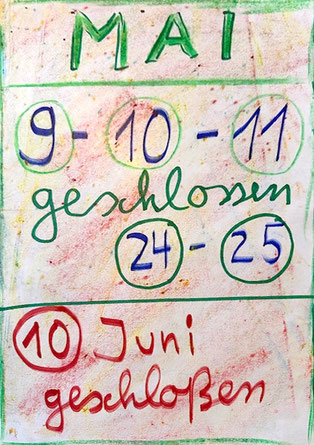 MAI
9 - 10 - 11
geschlossen
24 - 25
10 Juni
gescholßen